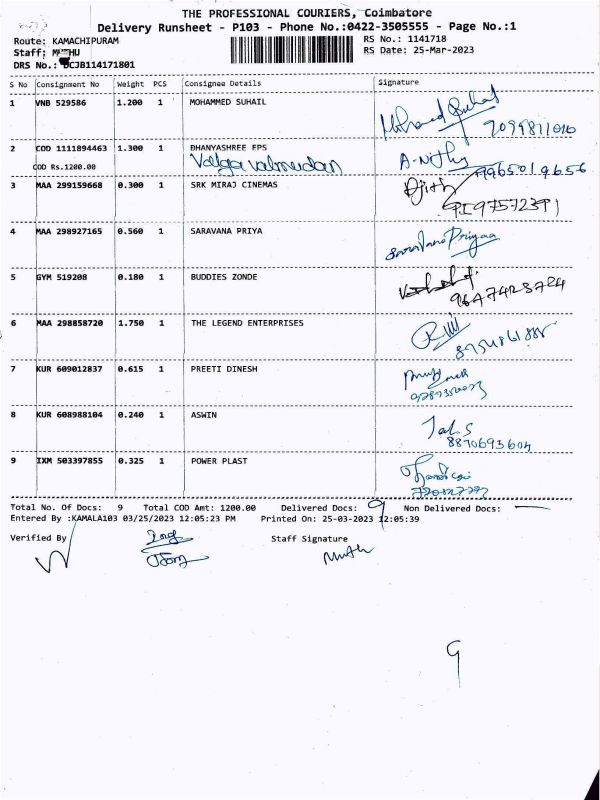 THE PROFESSIONAL COURIERS, Coimbatore
Delivery Runsheet - P103 - Phone No.:0422-3505555 - Page No.:1
Route: KAMACHIPURAM RS No.: 1141718
Staff: RS Date: 25-Mar-2023
DRS No.: DCJB114171801
S No Consignment No Weight PCS Consignee Details Signature
1 VNB 529586 1.200 1 MOHAMMED SUHAIL
Mohamed Suhail
7099811010
2 COD 1111894463 1.300 1 BHANYASHREE EPS
A-Nithy
COD Rs.1200.00
9965019656
3 MAA 299159668 0.300 1 SRK MIRAJ CINEMAS
Ajith
9197572391
4 MAA 298927165 0.560 1 SARAVANA PRIYA
Saravana Priyaa
5 GYM 519208 0.180 1 BUDDIES ZONDE
9647423724
6 MAA 298858720 1.750 1 THE LEGEND ENTERPRISES
7 KUR 609012837 0.615 1 PREETI DINESH
8 KUR 608988104 0.240 1 ASWIN
8870693604
9 IXM 503397855 0.325 1 POWER PLAST
Total No. Of Docs: 9 Total COD Amt: 1200.00 Delivered Docs: 9 Non Delivered Docs: —
Entered By :KAMALA103 03/25/2023 12:05:23 PM Printed On: 25-03-2023 12:05:39
Verified By Staff Signature
Muthu
9